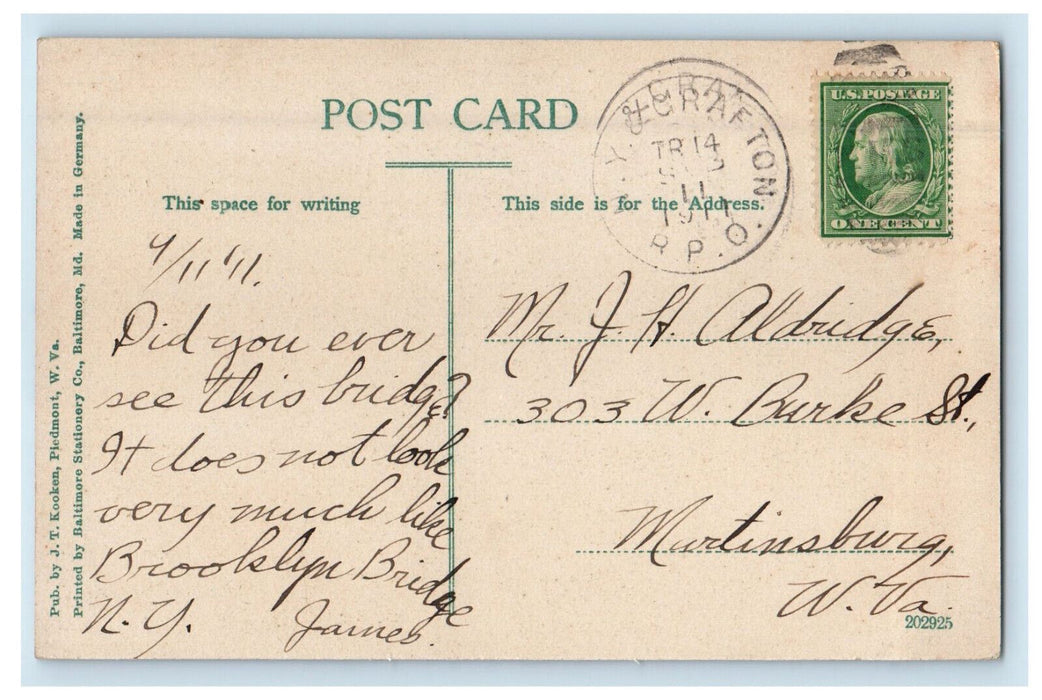 POST CARD
This space for writing
This side is for the Address.
& GRAFTON
TR 14
11
1911
R.P.O.
U.S. POSTAGE
ONE CENT
4/11'11.
Did you ever
see this bridge?
It does not look
very much like
Brooklyn Bridge
N.Y. James.
Mr. J. H. Aldridge,
303 W. Burke St.,
Martinsburg,
W. Va.
202925
Pub. by J. T. Kooken, Piedmont, W. Va.
Printed by Baltimore Stationery Co., Baltimore, Md. Made in Germany.